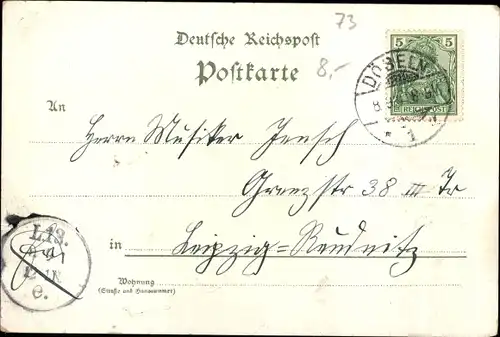 73
Deutsche Reichspost
Postkarte
8,-
5 5
REICHSPOST
DÖBELN
* 1
An
Herrn Musiker Jensch
Grenzstr 38 III Tr
in Leipzig=Reudnitz
Wohnung
(Straße und Hausnummer)
L.13.
e.